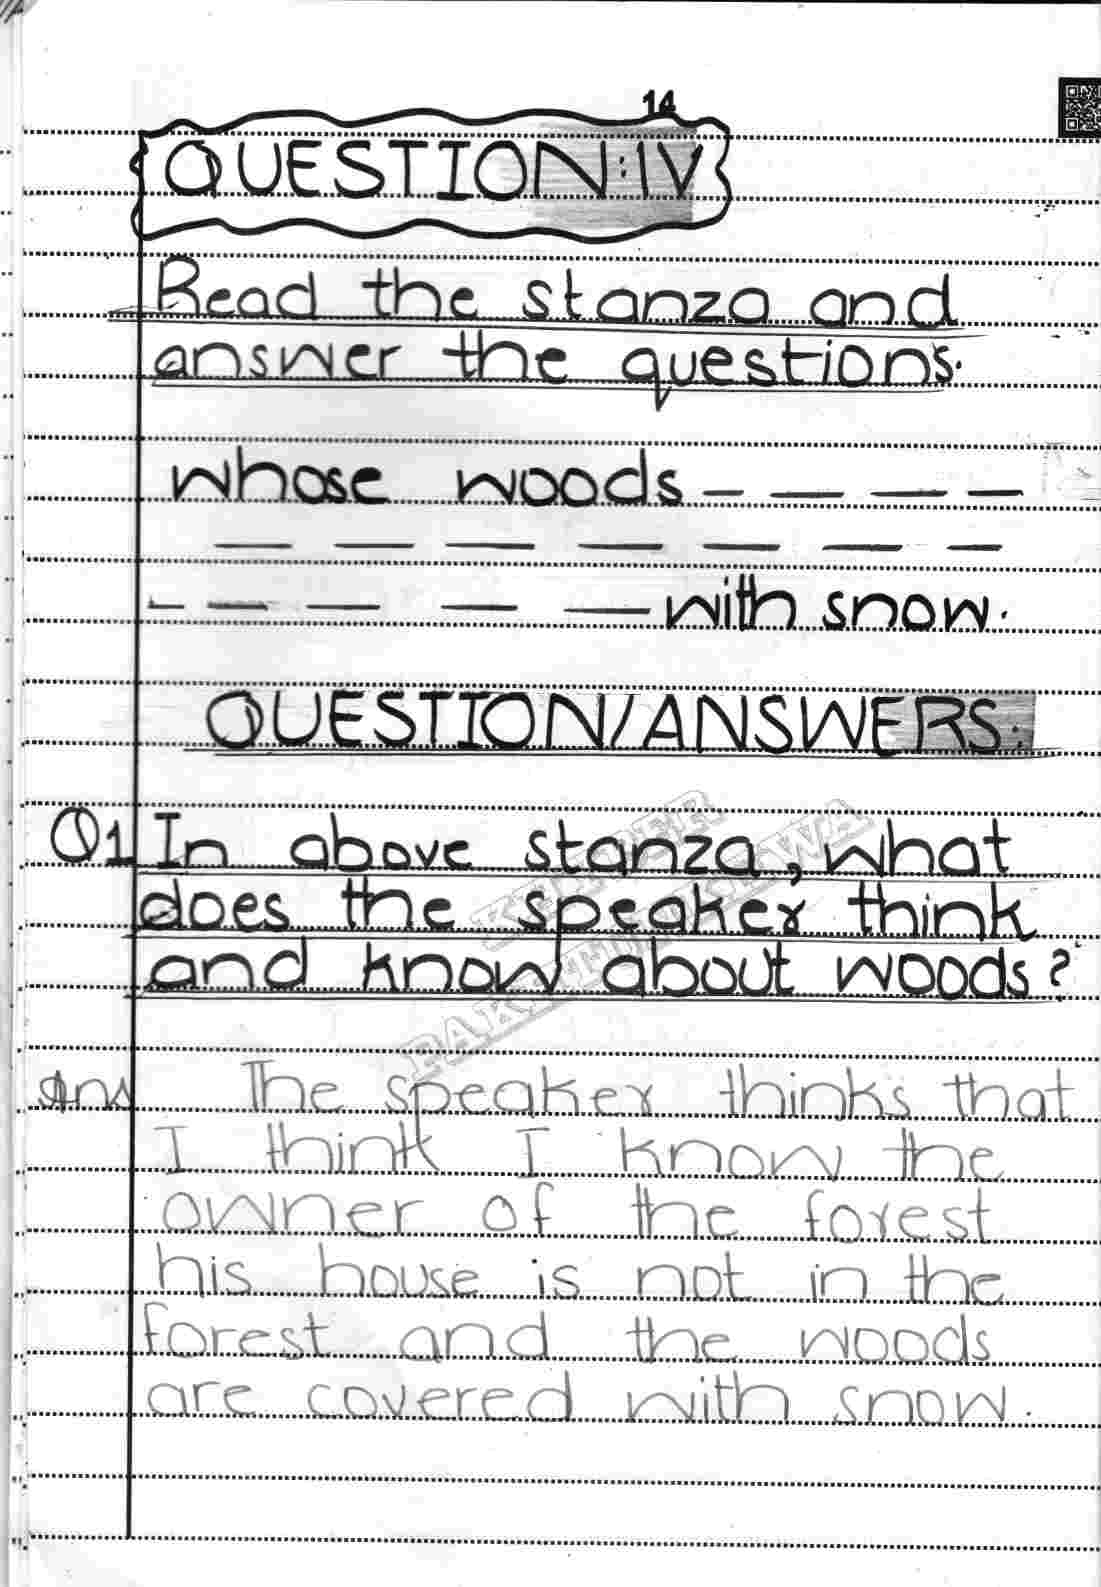 14
QUESTION:IV
Read the stanza and
answer the questions.
whose woods — — — —
— — — — — — —
— — — — — with snow.
QUESTION/ANSWERS:
Q1 In above stanza, what
does the speaker think
and know about woods?
KHYBER
PAKHTUNKHWA
Ans The speaker thinks that
I think I know the
owner of the forest
his house is not in the
forest and the woods
are covered with snow.